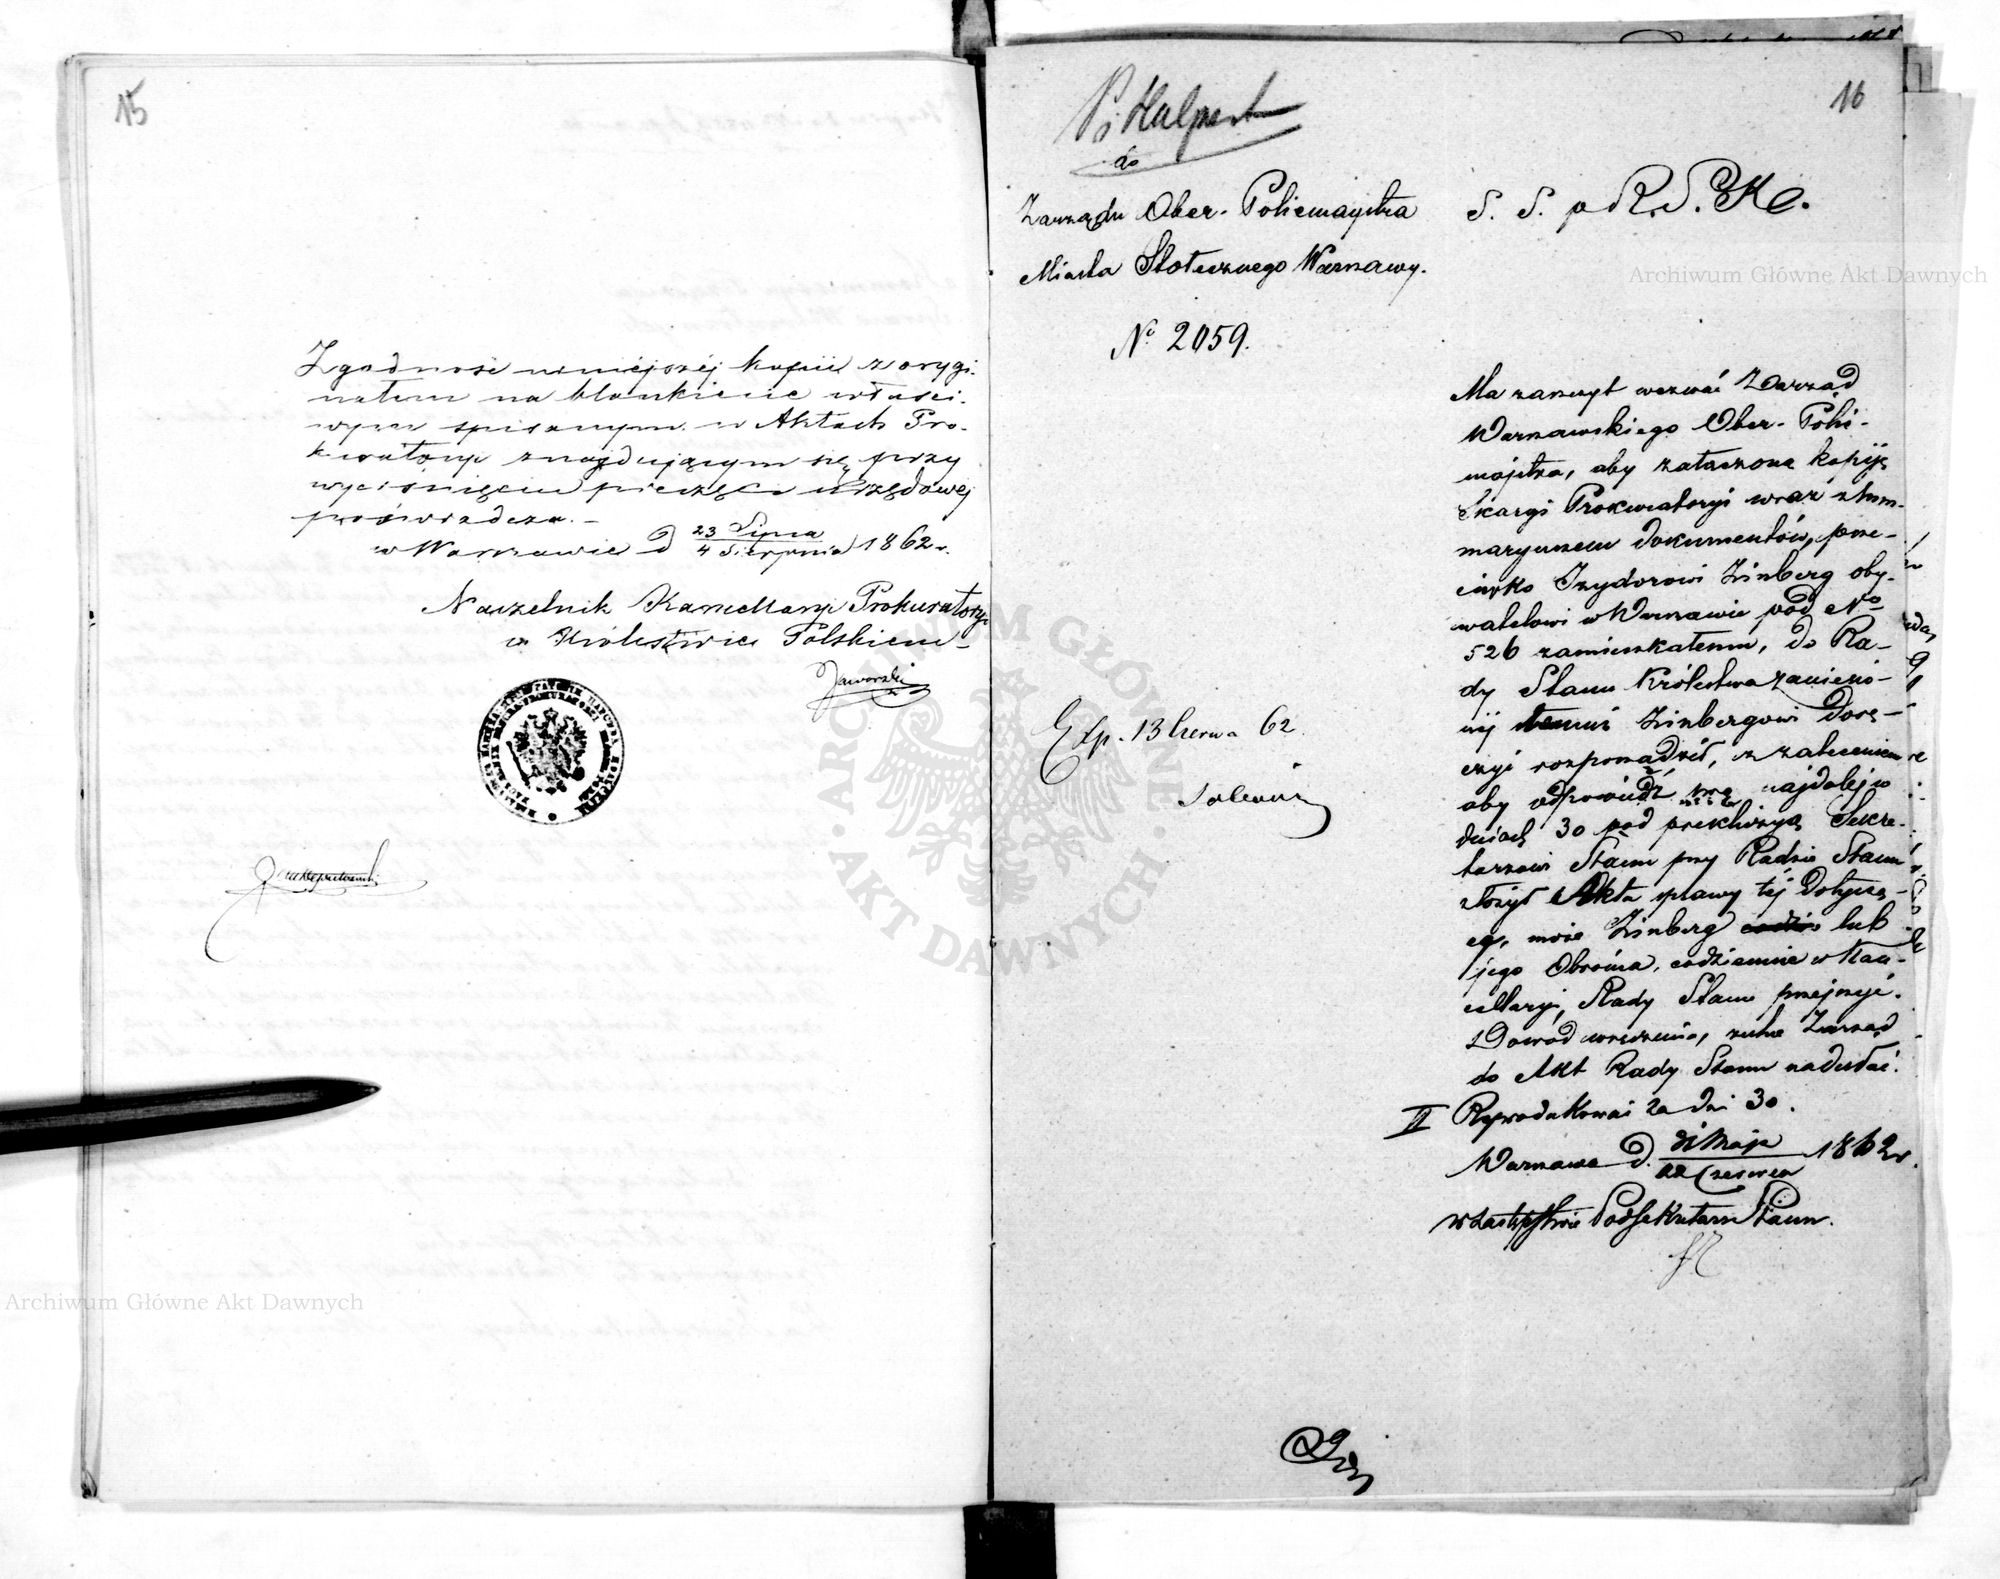 15
Zgodność niniejszéj kopii z orygi-
nałem na blankiecie właści-
wym spisanym w Aktach Pro-
kuratoryi znajdującym się, przy
wyciśnięciu pieczęci urzędowej
poświadcza. –
w Warszawie d 23 Lipca / 4 Sierpnia 1862 r.
Naczelnik Kancellaryi Prokuratoryi
w Królestwie Polskiem –
Jaworski
16
P. Halpert
do
Zarządu Ober-Policmajstra
Miasta Stołecznego Warszawy.
No 2059.
Exp. 13 Czerwca 62
S. S. p R. S. K.
Ma zaszczyt wezwać Zarząd
Warszawskiego Ober-Polic-
majstra, aby załączoną kopiję
skargi Prokuratoryi wraz z sum-
maryuszem dokumentów, prze-
ciwko Izydorowi Zinberg oby-
watelowi w Warszawie pod No
526 zamieszkałemu, do Ra-
dy Stanu Królestwa zaniesio-
néj temuż Zinbergowi dorę-
czyć rozporządził, z zaleceniem
aby odpowiedź swą najdalej w
dniach 30 pod prekluzyą Sekre-
tarzowi Stanu przy Radzie Stanu
złożył Akta sprawy téj dotyczą-
ce, może Zinberg lub
jego Obrońca, codziennie w Kan-
cellaryi Rady Stanu przejrzyć.
Dowód wręczenia, zechce Zarząd
do Akt Rady Stanu nadesłać.
II Reprodukować za dni 30.
Warszawa d. 31 Maja / 12 Czerwca 1862 r.
w Zastępstwie Podsekretarz Stanu.
Archiwum Główne Akt Dawnych
Archiwum Główne Akt Dawnych
ARCHIWUM GŁÓWNE AKT DAWNYCH